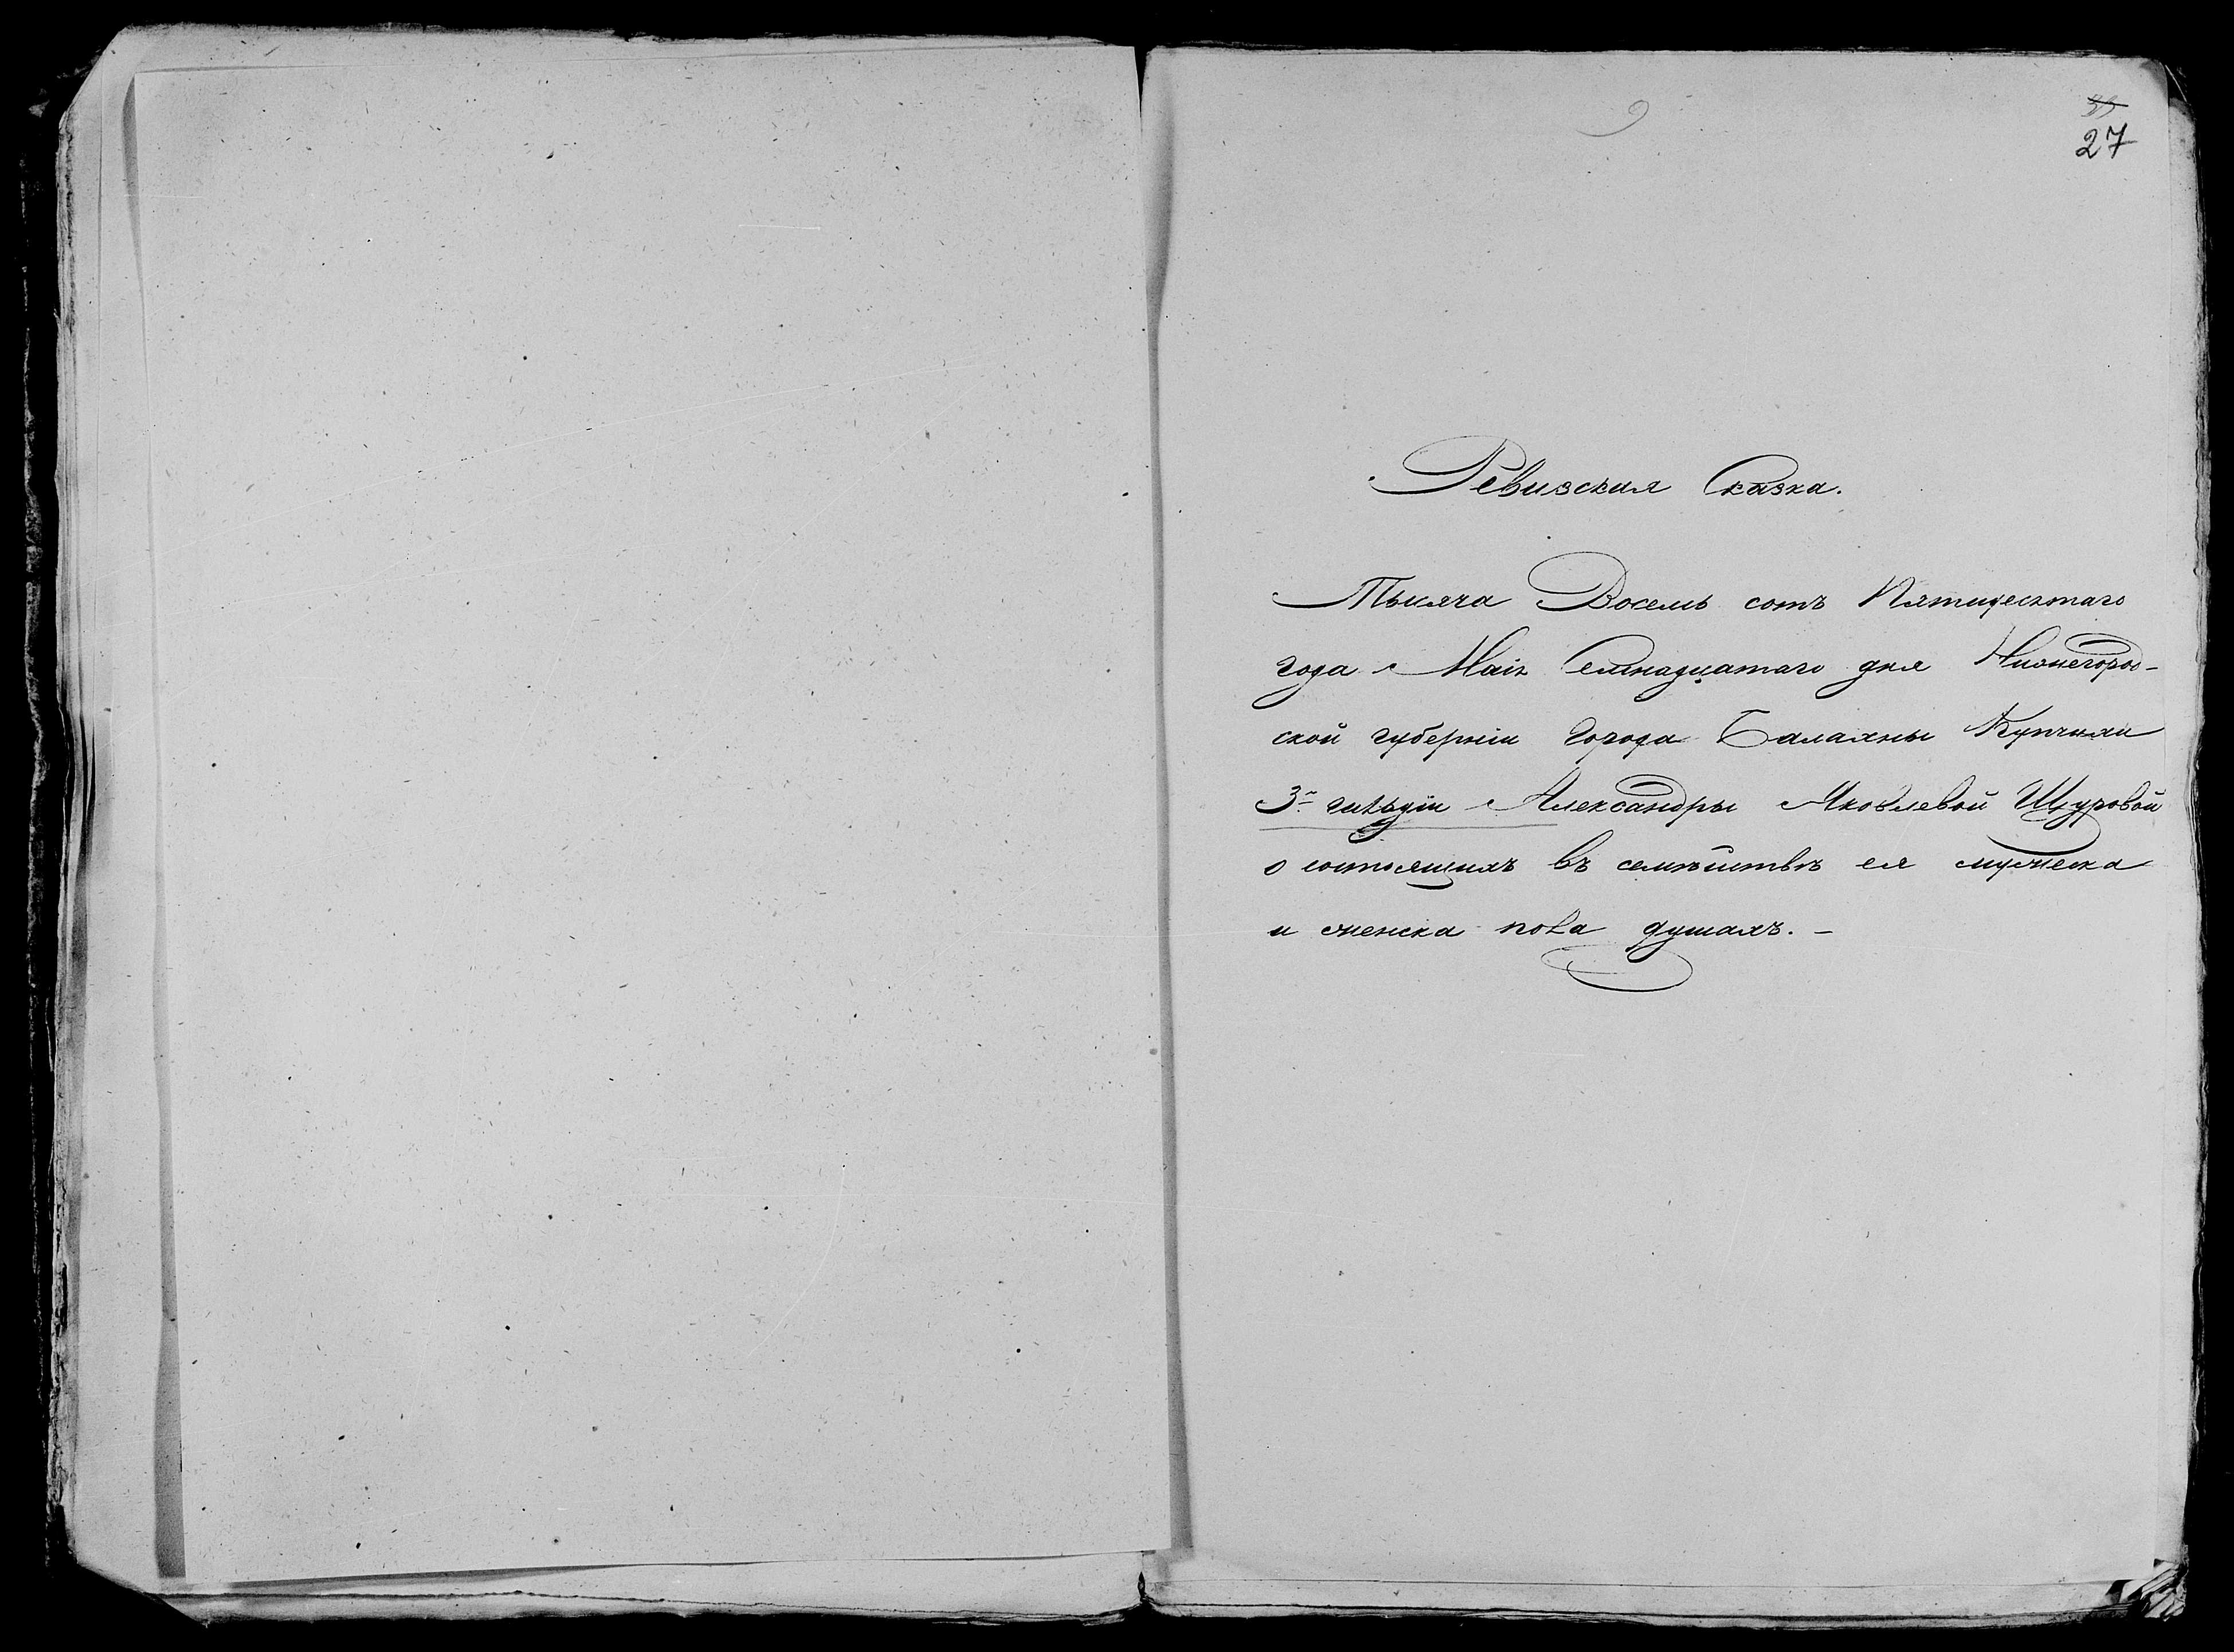 9
27
Ревизская Сказка.
Тысяча Восемь сотъ Пятидесятаго
года Маія Семнадцатаго дня Нижегород-
ской губерніи города Балахны Купчихи
3й гильдіи Александры Яковлевой Щуровой
о состоящихъ въ семѣйствѣ ея мужеска
и женска пола душахъ. –